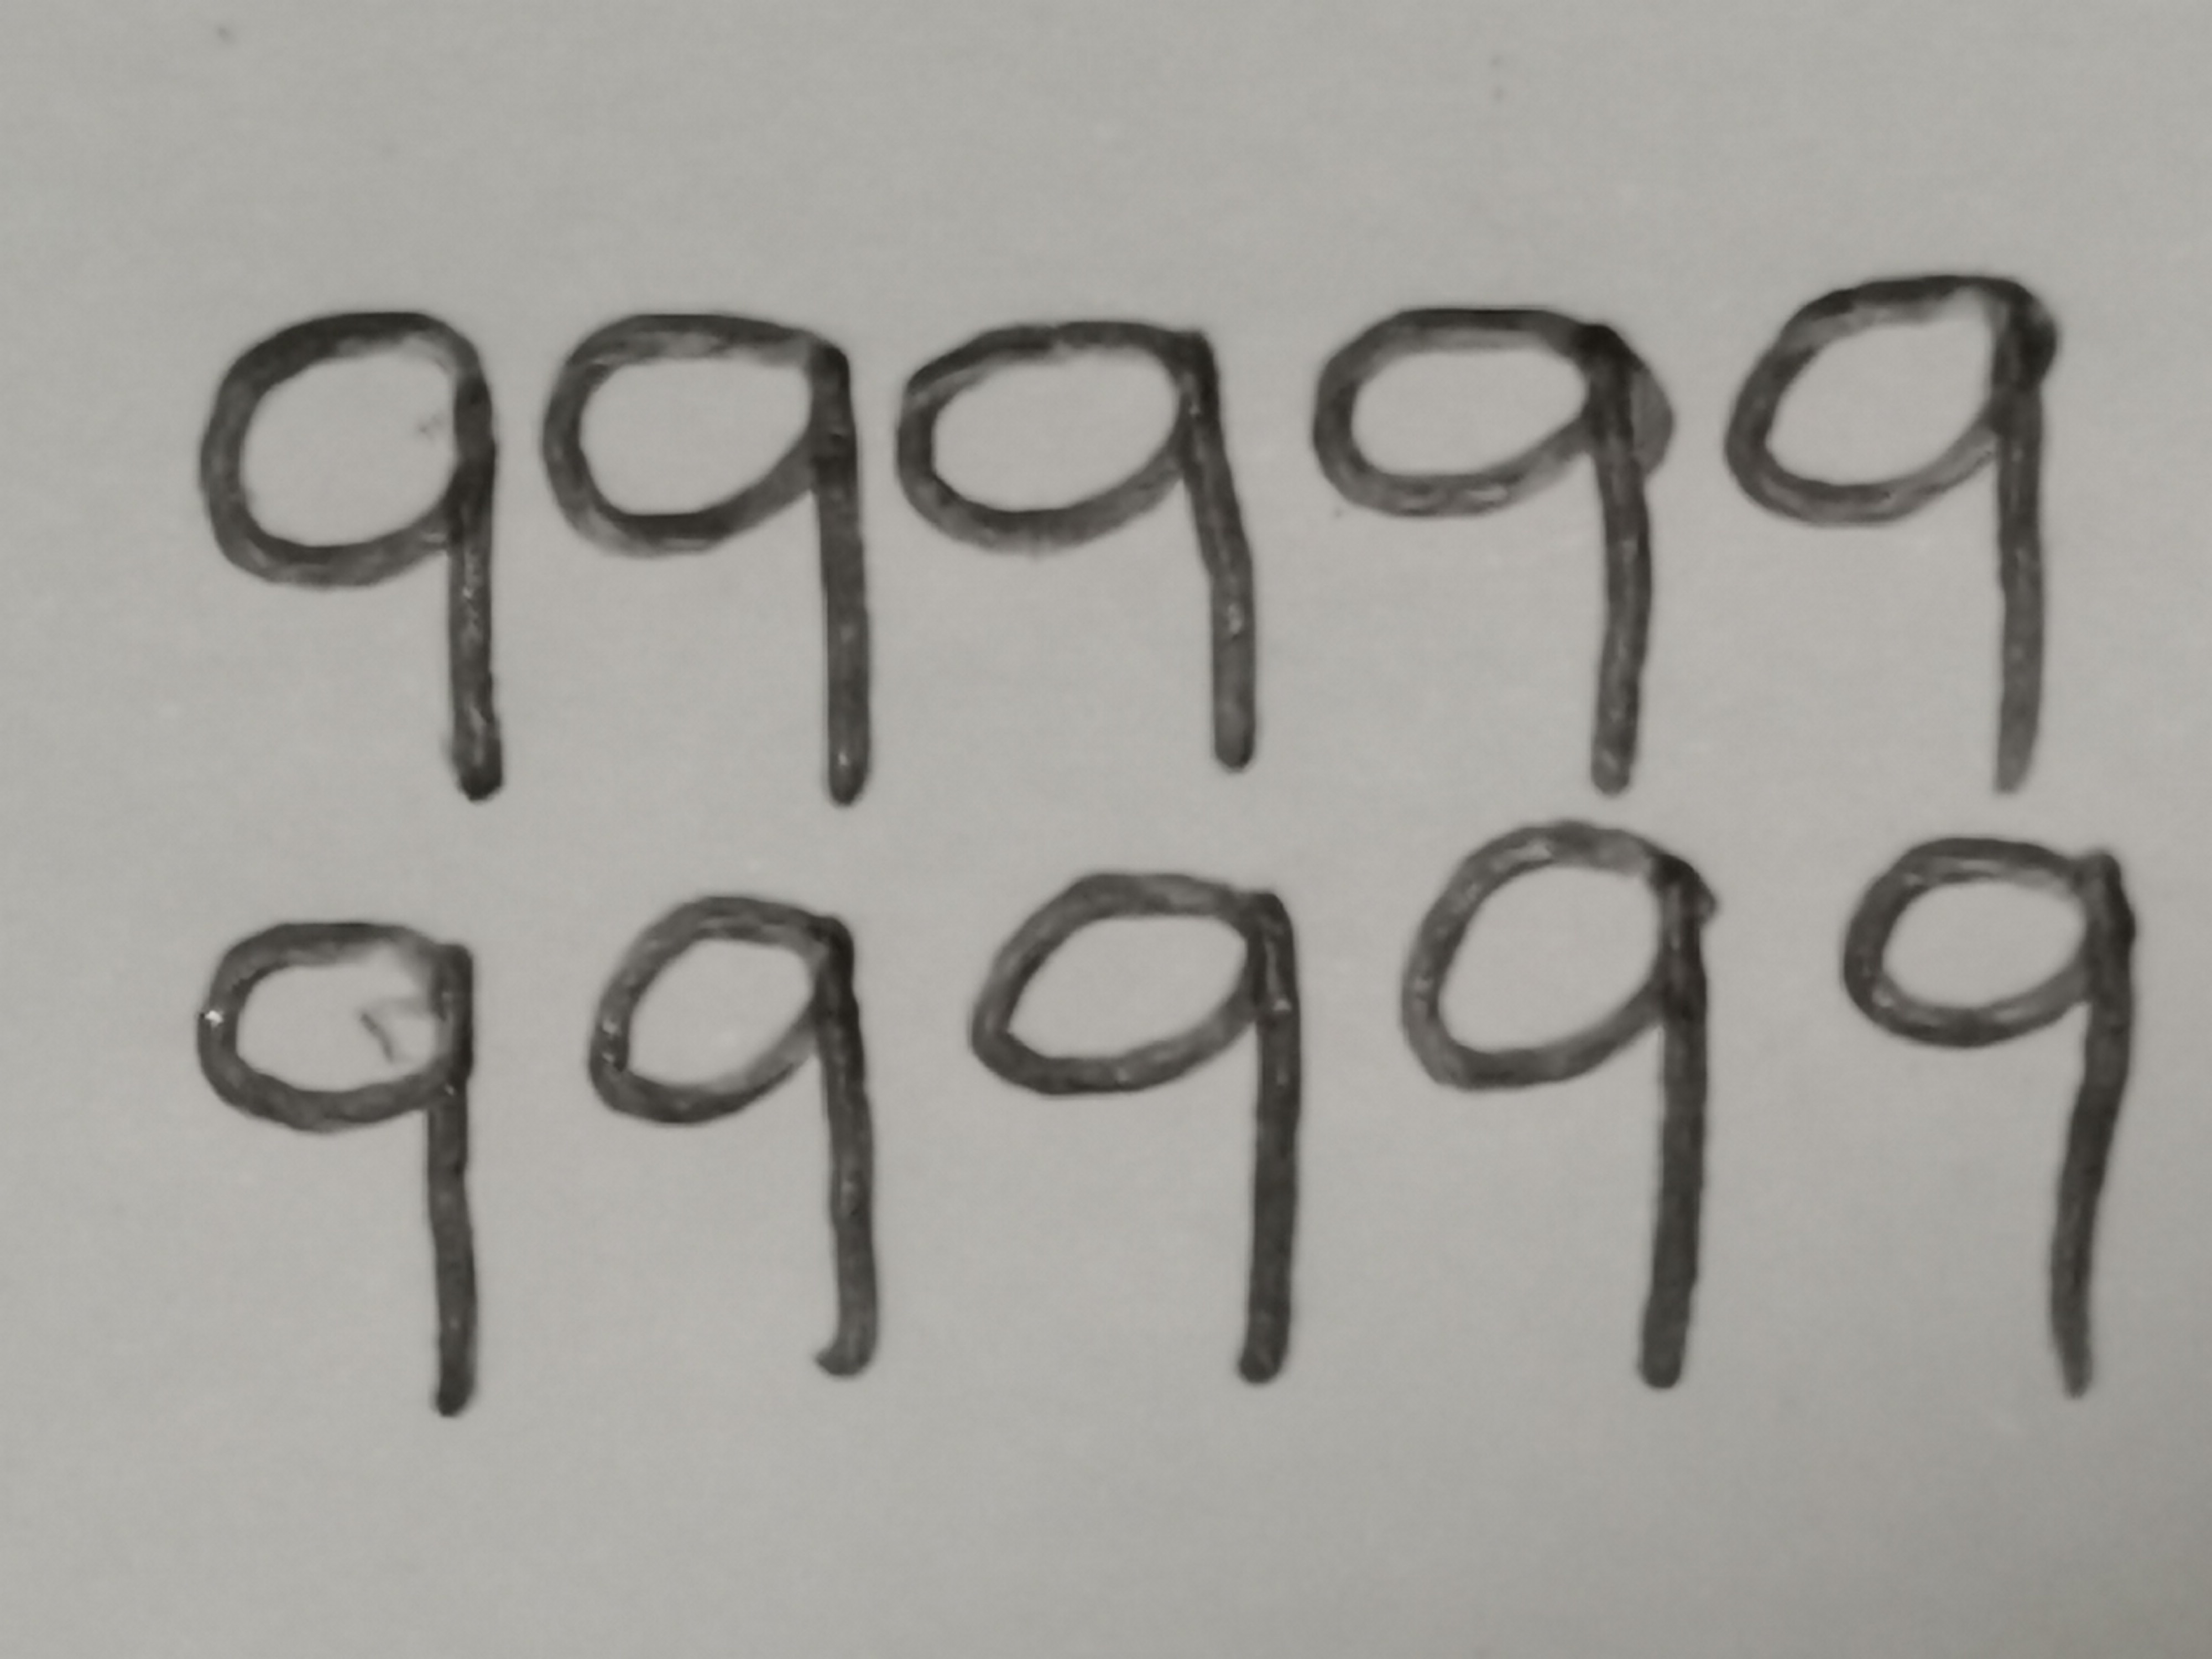 99999
99999